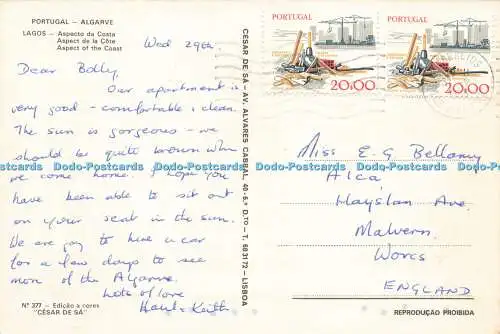 PORTUGAL - ALGARVE
LAGOS - Aspecto da Costa
Aspect de la Côte
Aspect of the Coast
Wed 29th.
Dear Bolly,
Our apartment is
very good - comfortable & clean.
The sun is gorgeous - we
should be quite brown when
we come home. I hope you
have been able to sit out
on your seat in the sun.
We are going to hire a car
for a few days to see
more of the Algarve.
Lots of love
Keith
Nº 377 - Edição a cores
"CÉSAR DE SÁ"
CÉSAR DE SÁ - AV. ALVARES CABRAL, 40-6.º D.TO - T. 683172 - LISBOA
PORTUGAL
20$00
PORTUGAL
20$00
Miss E. G. Bellamy
Alca
Hayslan Ave.
Malvern.
Worcs
ENGLAND
REPRODUÇÃO PROIBIDA
Dodo-Postcards Dodo-Postcards Dodo-Postcards Dodo-Postcards Dodo-Postcards